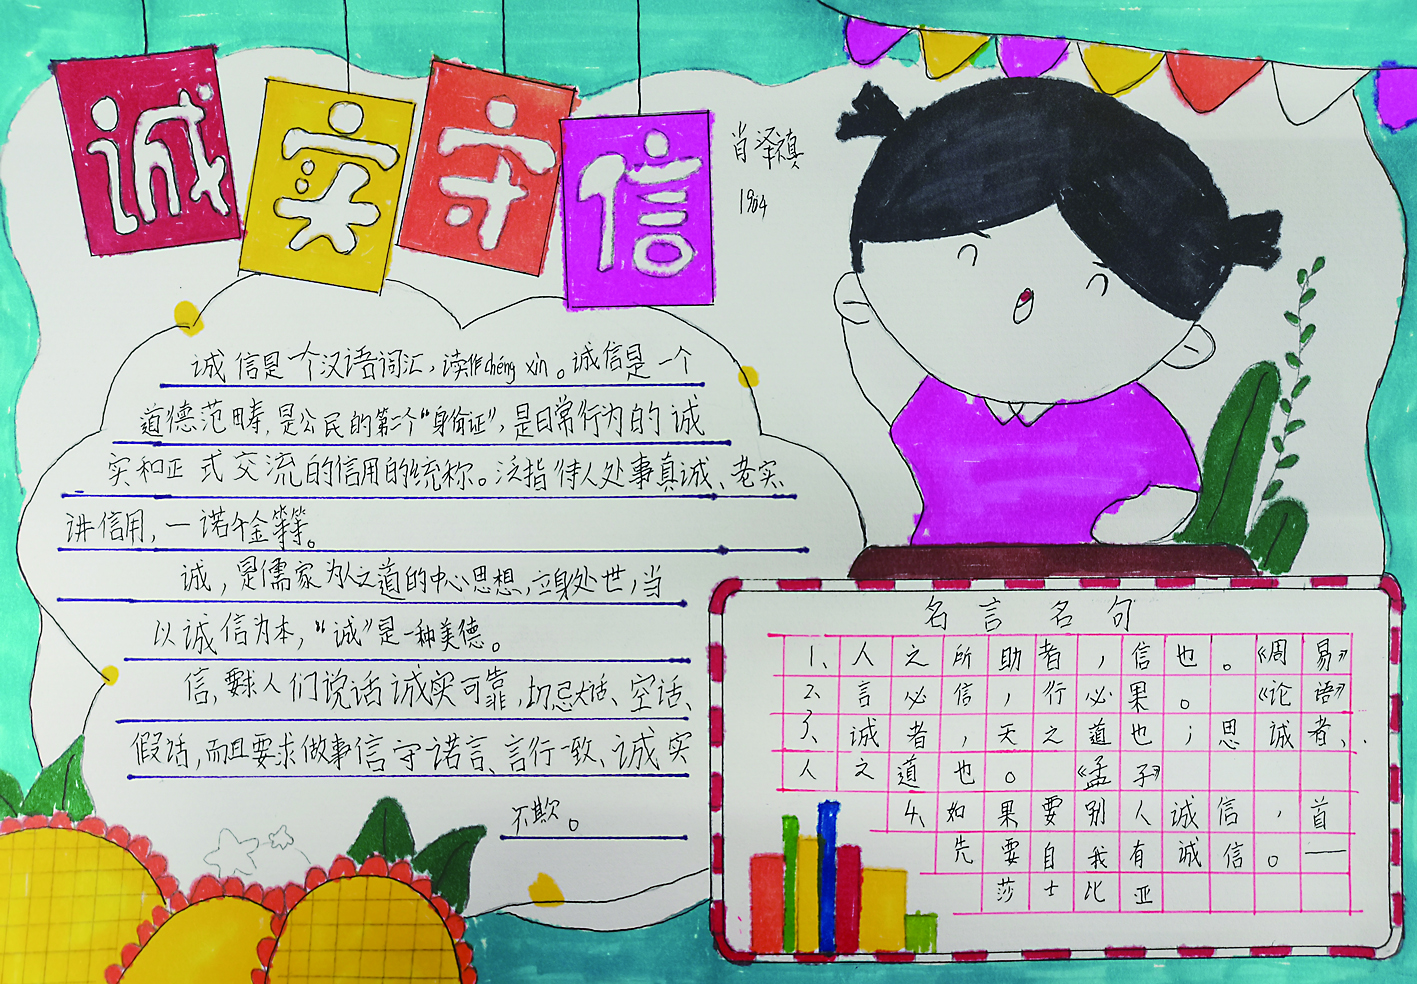 诚实守信
肖泽禛
1904
诚信是一个汉语词汇，读作chéng xìn。诚信是一个
道德范畴，是公民的第二个“身份证”，是日常行为的诚
实和正式交流的信用的统称。泛指待人处事真诚、老实、
讲信用，一诺千金等等。
诚，是儒家为人之道的中心思想，立身处世，当
以诚信为本，“诚”是一种美德。
信，要求人们说话诚实可靠，切忌大话、空话、
假话，而且要求做事信守诺言、言行一致、诚实
不欺。
名言名句
1、人之所助者，信也。《周易》
2、言必信，行必果。《论语》
3、诚者，天之道也；思诚者、
人之道也。《孟子》
4、如果要别人诚信，首
先要自我有诚信。—
莎士比亚